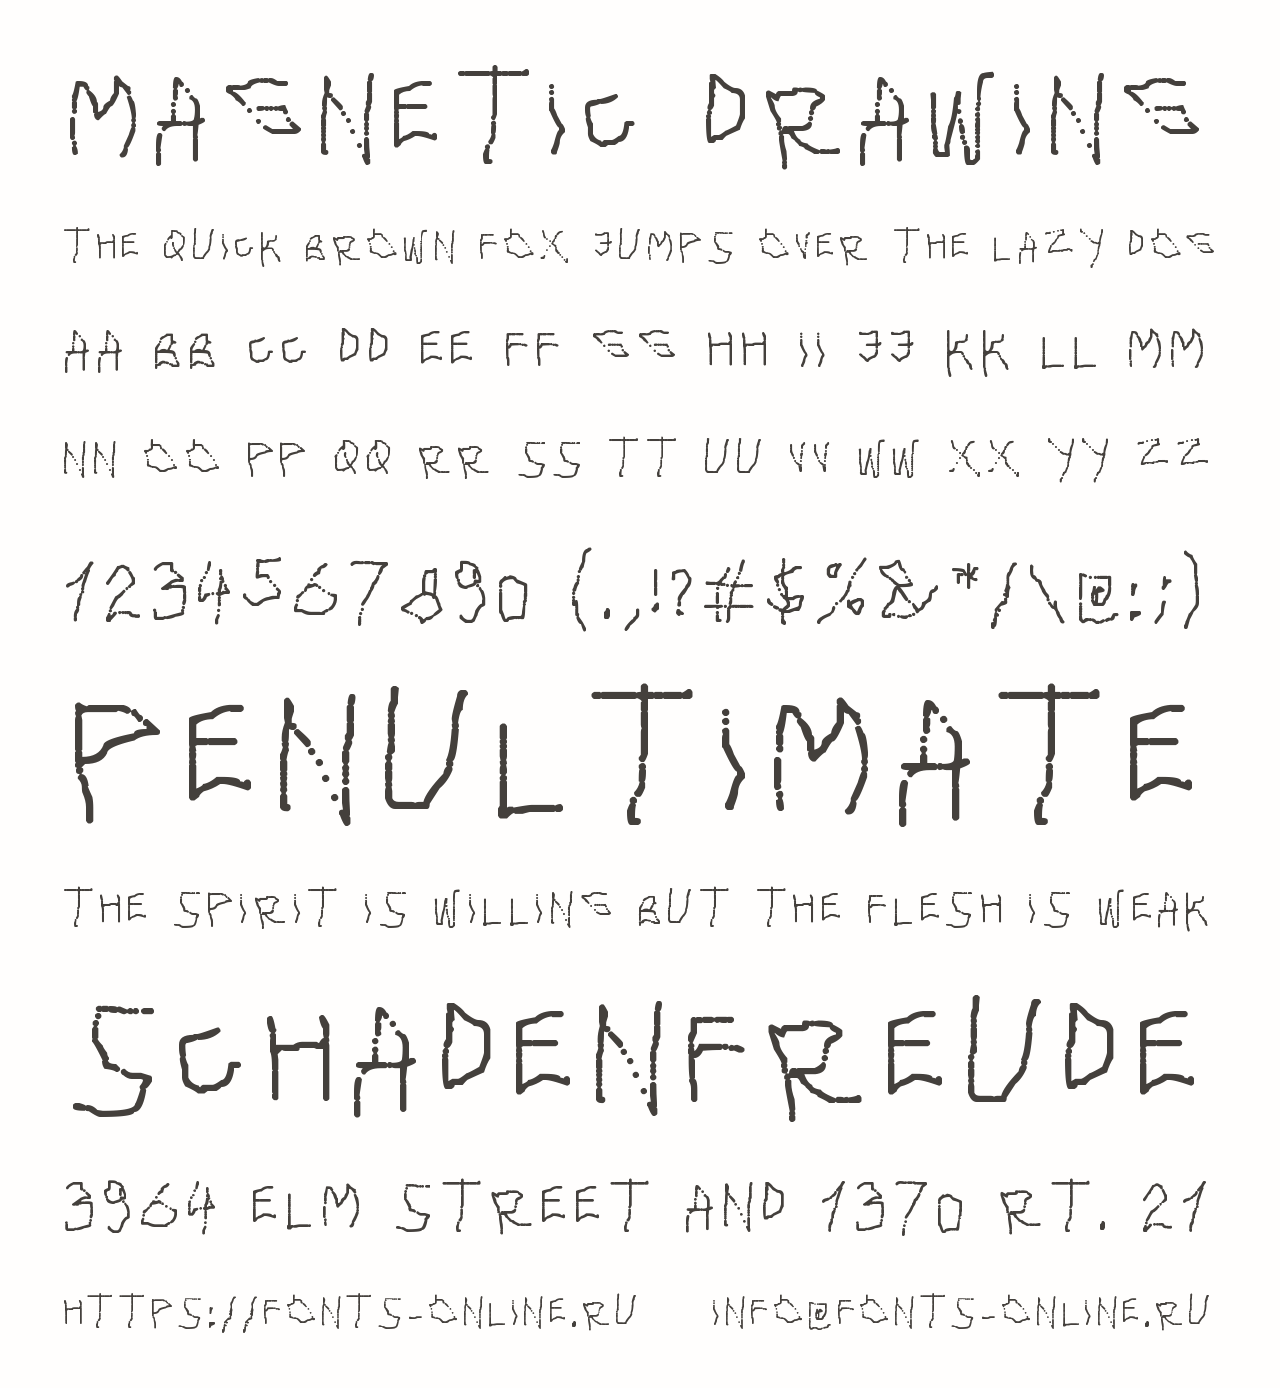 MAGNETIC DRAWING
THE QUICK BROWN FOX JUMPS OVER THE LAZY DOG
AA BB CC DD EE FF GG HH II JJ KK LL MM
NN OO PP QQ RR SS TT UU VV WW XX YY ZZ
1234567890 (.,!?#$%&*/\@:;)
PENULTIMATE
THE SPIRIT IS WILLING BUT THE FLESH IS WEAK
SCHADENFREUDE
3964 ELM STREET AND 1370 RT. 21
HTTPS://FONTS-ONLINE.RU INFO@FONTS-ONLINE.RU